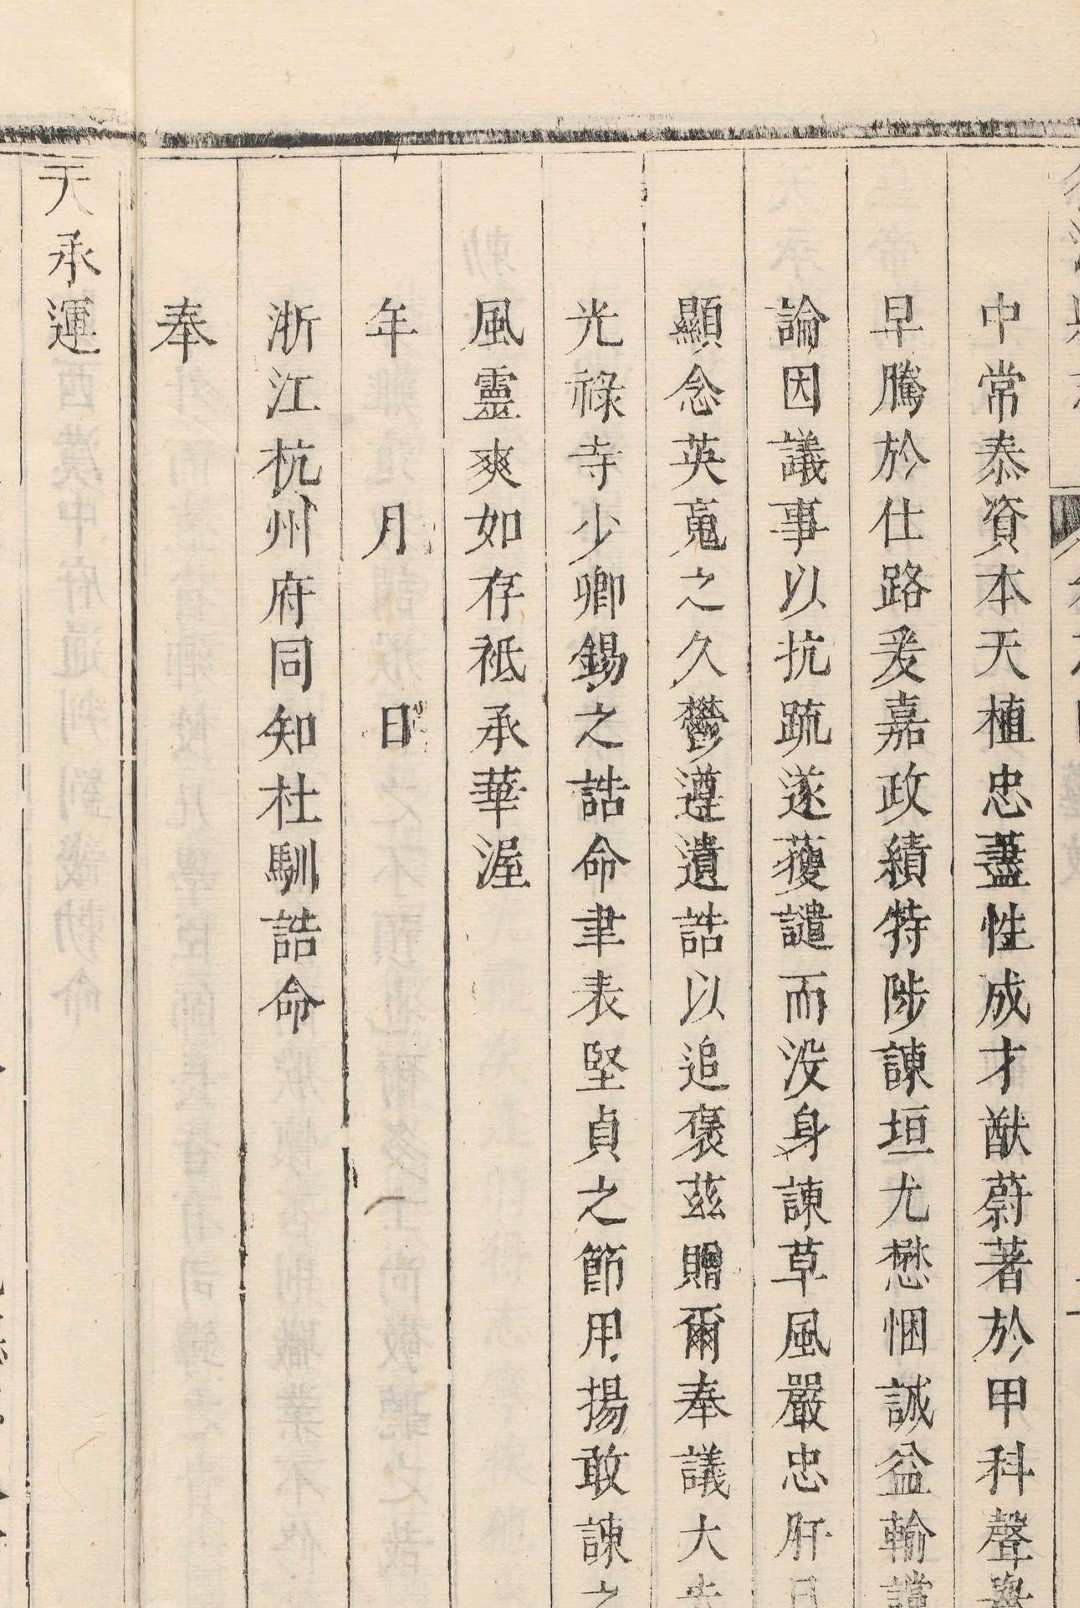 中常泰資本天植忠藎性成才猷蔚著於甲科聲譽
早騰於仕路爰嘉政績特陟諫垣尤懋悃誠益輸讜
論因議事以抗疏遂獲譴而沒身諫草風嚴忠肝日
顯念英䰟之久鬱遵遺誥以追褒茲贈爾奉議大夫
光祿寺少卿錫之誥命聿表堅貞之節用揚敢諫之
風靈爽如存祗承華渥
年　月　日
浙江杭州府同知杜馴誥命
奉
天承運